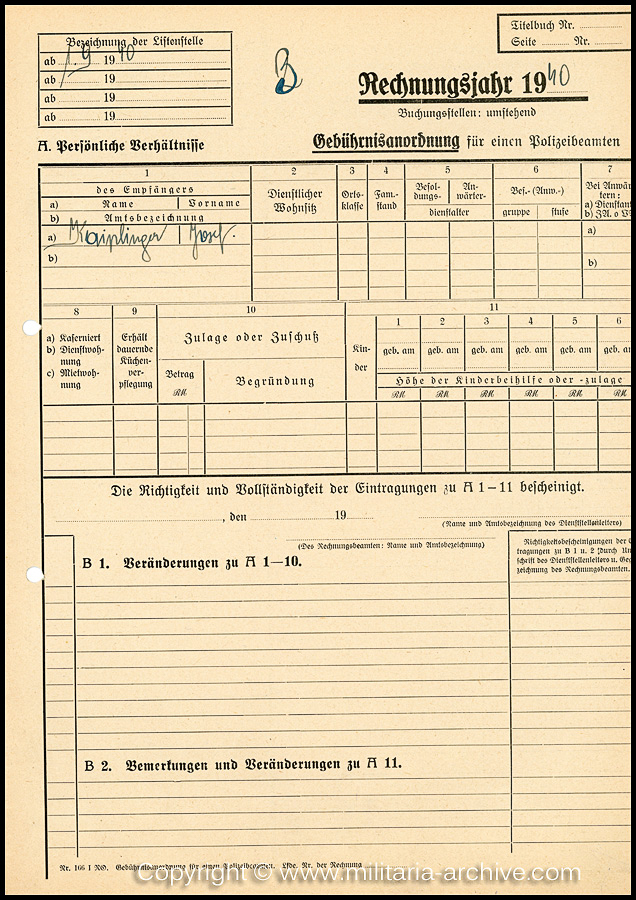 Titelbuch Nr.
Seite Nr.
Bezeichnung der Listenstelle
ab 1. 9 1940
ab 19
ab 19
ab 19
B
Rechnungsjahr 1940
Buchungsstellen: umstehend
A. Persönliche Verhältnisse
Gebührnisanordnung für einen Polizeibeamten
1 2 3 4 5 6 7
des Empfängers
a) Name Vorname
b) Amtsbezeichnung
Dienstlicher Wohnsitz
Orts-klasse
Fam.-stand
Besol-dungs- An-wärter-
dienstalter
Bes.- (Anw.-)
gruppe stufe
Bei Anwär
tern:
a) Dienstan
b) ZA. o V
a) Kaiplinger Josef.
b)
a)
b)
8 9 10 11
a) Kaserniert
b) Dienstwoh-
nung
c) Mietwoh-
nung
Erhält
dauernde
Küchen-
ver-
pflegung
Zulage oder Zuschuß
Betrag
RM
Begründung
Kin-
der
1 2 3 4 5 6
geb. am geb. am geb. am geb. am geb. am geb. am
Höhe der Kinderbeihilfe oder -zulage
RM RM RM RM RM RM
Die Richtigkeit und Vollständigkeit der Eintragungen zu A 1–11 bescheinigt.
, den 19
(Name und Amtsbezeichnung des Dienststellenleiters)
(Des Rechnungsbeamten: Name und Amtsbezeichnung)
Richtigkeitsbescheinigungen der
tragungen zu B 1 u. 2 (durch Un
schrift des Dienststellenleiters u. Geg
zeichnung des Rechnungsbeamten.
B 1. Veränderungen zu A 1–10.
B 2. Bemerkungen und Veränderungen zu A 11.
Nr. 166 I RO. Gebührnisanordnung für einen Polizeibeamten. Lfde. Nr. der Rechnung
Copyright © www.militaria-archive.com